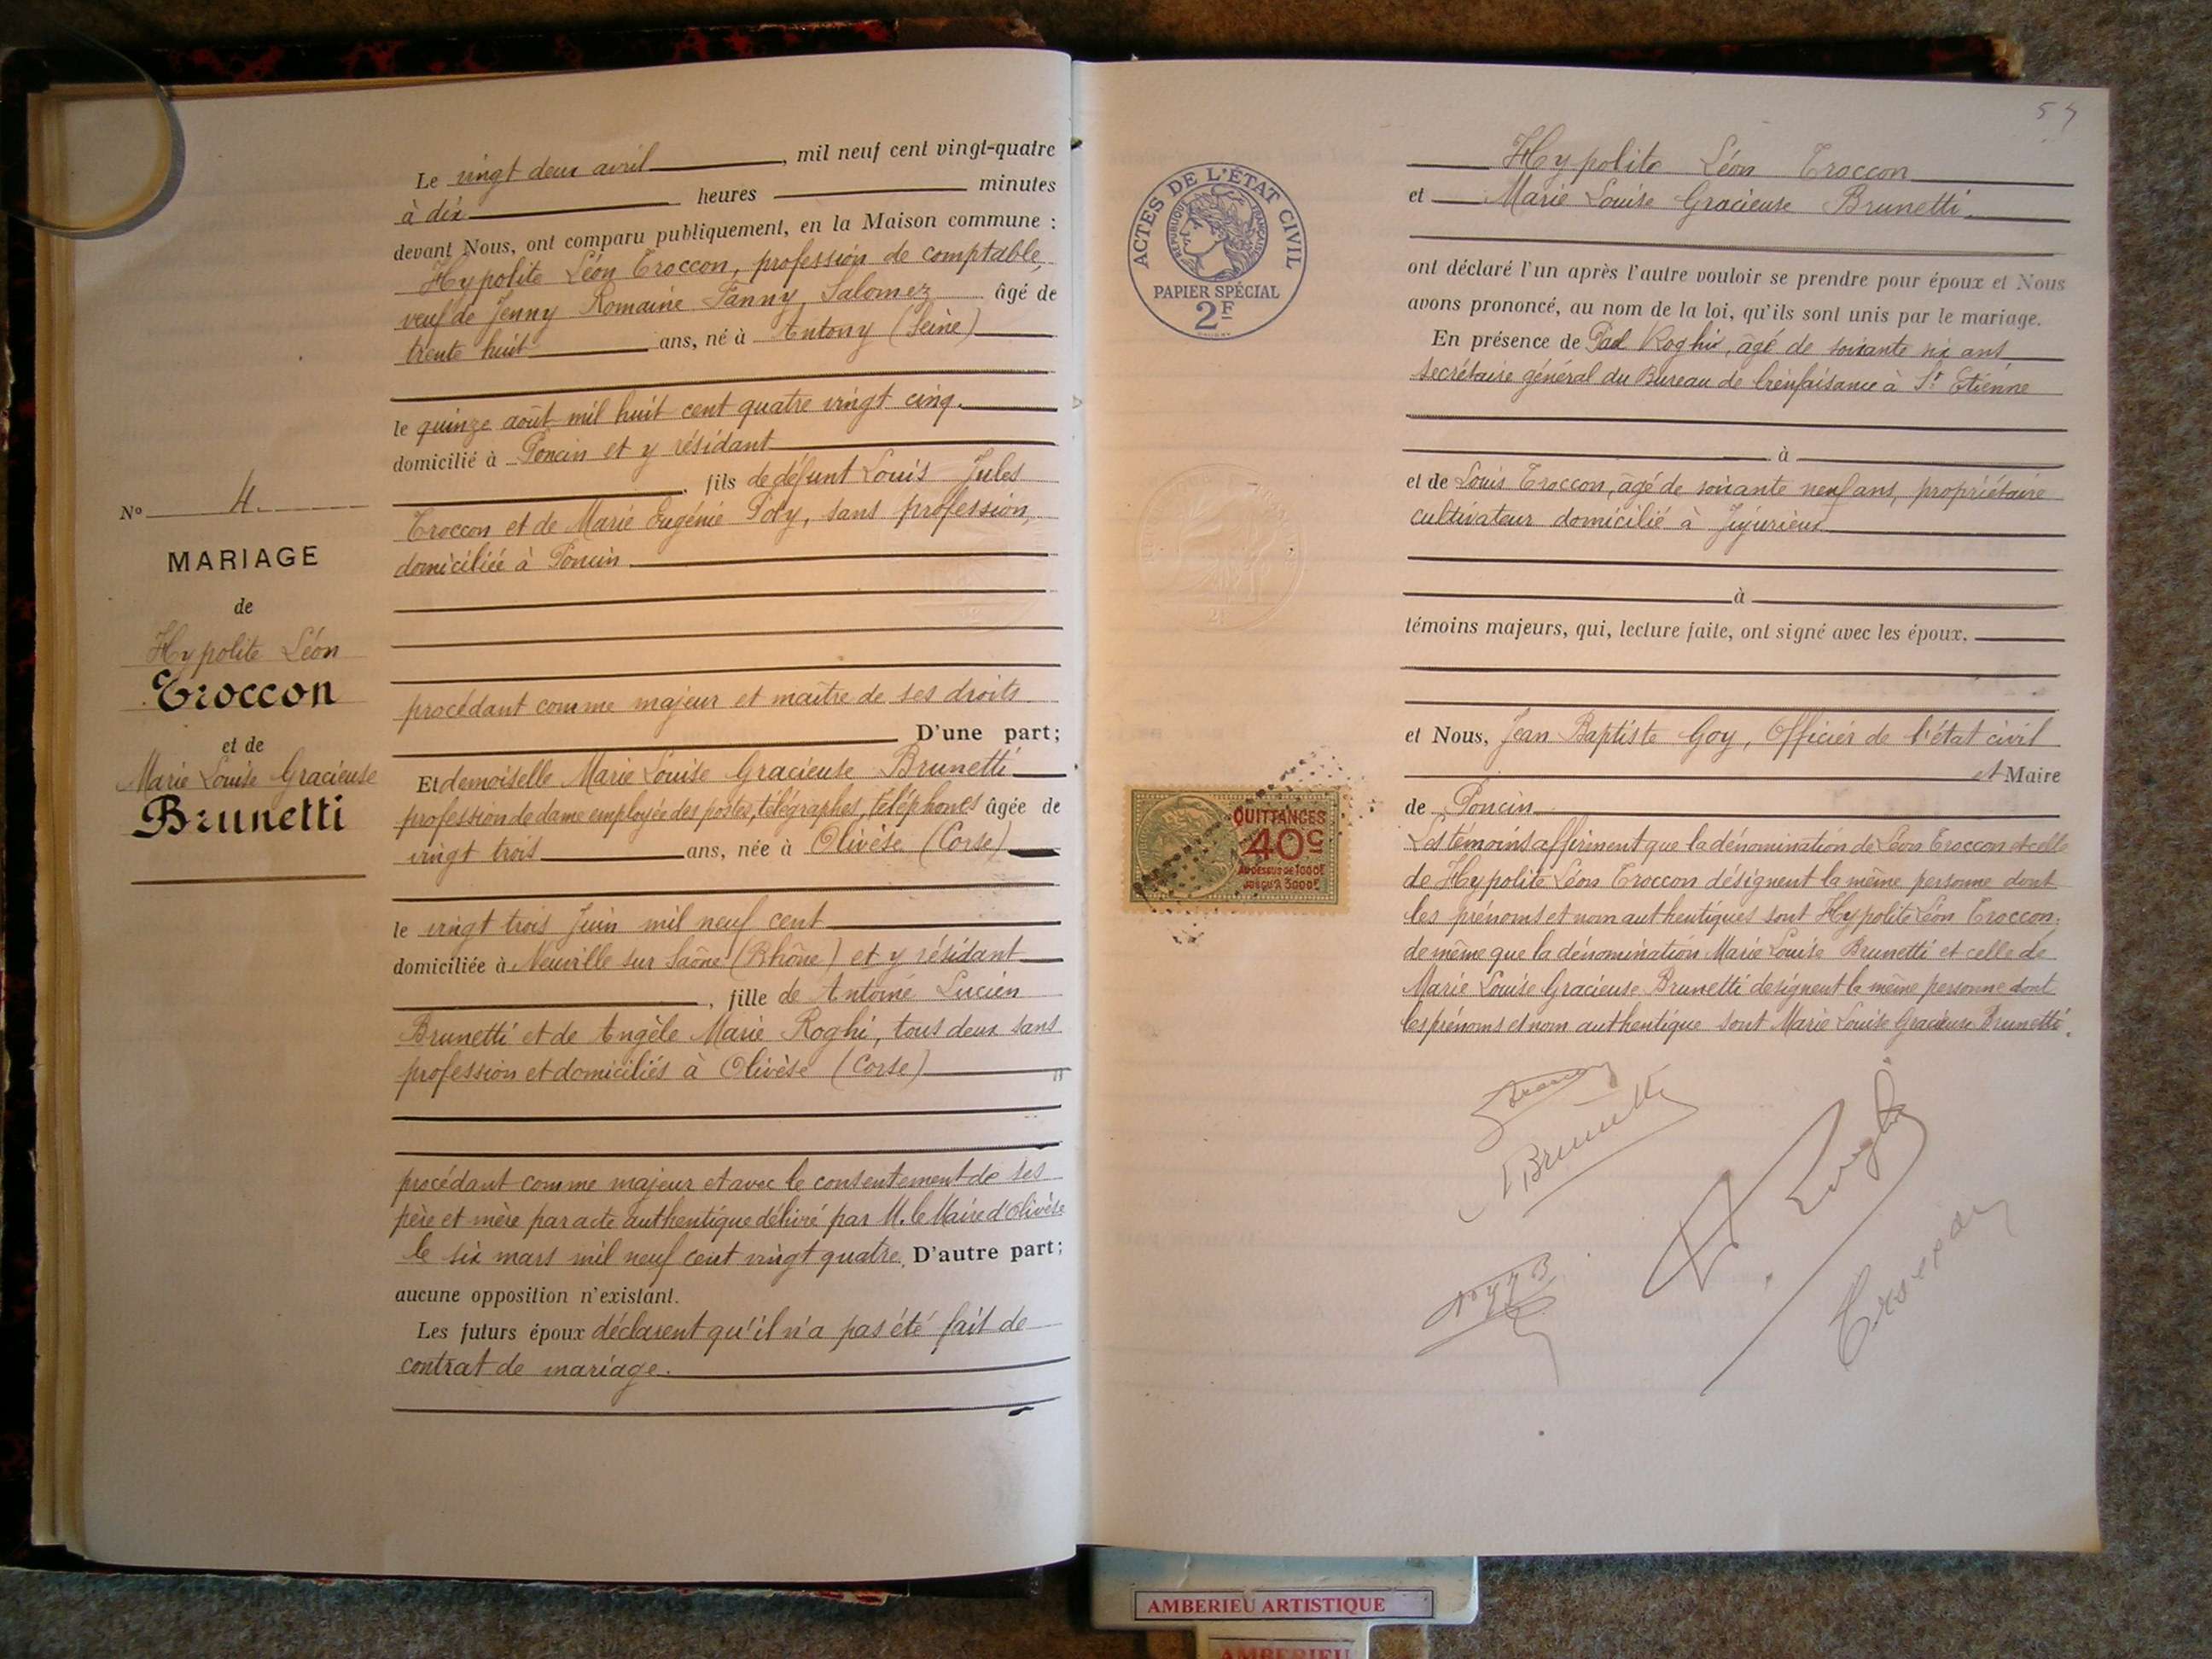 Le vingt deux avril, mil neuf cent vingt-quatre
à dix heures minutes
devant Nous, ont comparu publiquement, en la Maison commune :
Hypolite Léon Troccon, profession de comptable,
veuf de Jenny Romaine Fanny Salomez âgé de
trente huit ans, né à Antony (Seine)
le quinze août mil huit cent quatre vingt cinq.
domicilié à Poncin et y résidant
, fils de défunt Louis Jules
Troccon et de Marie Eugénie Poly, sans profession,
domiciliée à Poncin
procédant comme majeur et maître de ses droits
D'une part;
Et demoiselle Marie Louise Gracieuse Brunetti
profession de dame employée des postes, télégraphes, téléphones âgée de
vingt trois ans, née à Olivèse (Corse)
le vingt trois Juin mil neuf cent
domiciliée à Neuville sur Saône (Rhône) et y résidant
, fille de Antoine Lucien
Brunetti et de Angèle Marie Roghi, tous deux sans
profession et domiciliés à Olivèse (Corse)
procédant comme majeur et avec le consentement de ses
père et mère par acte authentique délivré par M. le Maire d'Olivèse
le six mars mil neuf cent vingt quatre. D'autre part;
aucune opposition n'existant.
Les futurs époux déclarent qu'il n'a pas été fait de
contrat de mariage.
N° 4.
MARIAGE
de
Hypolite Léon
Troccon
et de
Marie Louise Gracieuse
Brunetti
ACTES DE L'ÉTAT CIVIL
RÉPUBLIQUE FRANÇAISE
PAPIER SPÉCIAL
2F
QUITTANCES
40c
AU DESSUS DE 1000F
JUSQU'A 3000F
Hypolite Léon Troccon
et Marie Louise Gracieuse Brunetti.
ont déclaré l'un après l'autre vouloir se prendre pour époux et Nous
avons prononcé, au nom de la loi, qu'ils sont unis par le mariage.
En présence de Roghi, âgé de soixante six ans
secrétaire général du Bureau de bienfaisance à St Etienne
à
et de Louis Troccon, âgé de soixante neuf ans, propriétaire
cultivateur domicilié à Jujurieux
à
témoins majeurs, qui, lecture faite, ont signé avec les époux.
et Nous, Jean Baptiste Goy, Officier de l'état civil
et Maire
de Poncin
Les témoins affirment que la dénomination de Léon Troccon et celle
de Hypolite Léon Troccon désignent la même personne dont
les prénoms et nom authentiques sont Hypolite Léon Troccon,
de même que la dénomination Marie Louise Brunetti et celle de
Marie Louise Gracieuse Brunetti designent la même personne dont
les prénoms et nom authentique sont Marie Louise Gracieuse Brunetti.
Brunetti
AMBERIEU ARTISTIQUE
AMBERIEU